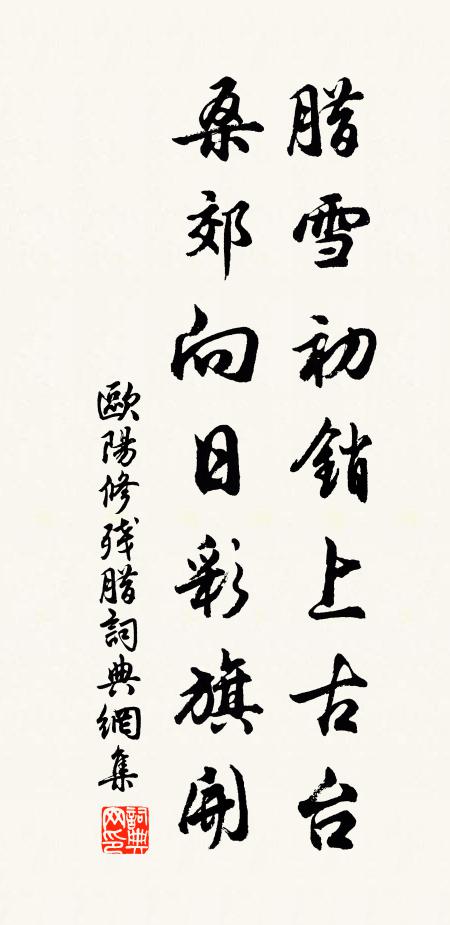 腊雪初銷上古台
桑郊向日彩旗開
歐陽修残腊詞典網集
詞典网印